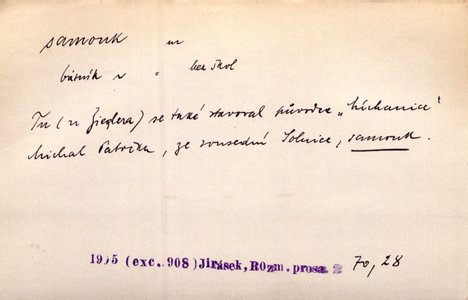 samouk m
básník v " bez škol
Tu (u Zieglera) se také stavoval původce „Kuchanice"
Michal Patrčka, ze sousední Solnice, samouk.
1905 (exc. 908) Jirásek, Rozm. prosa 2 70, 28